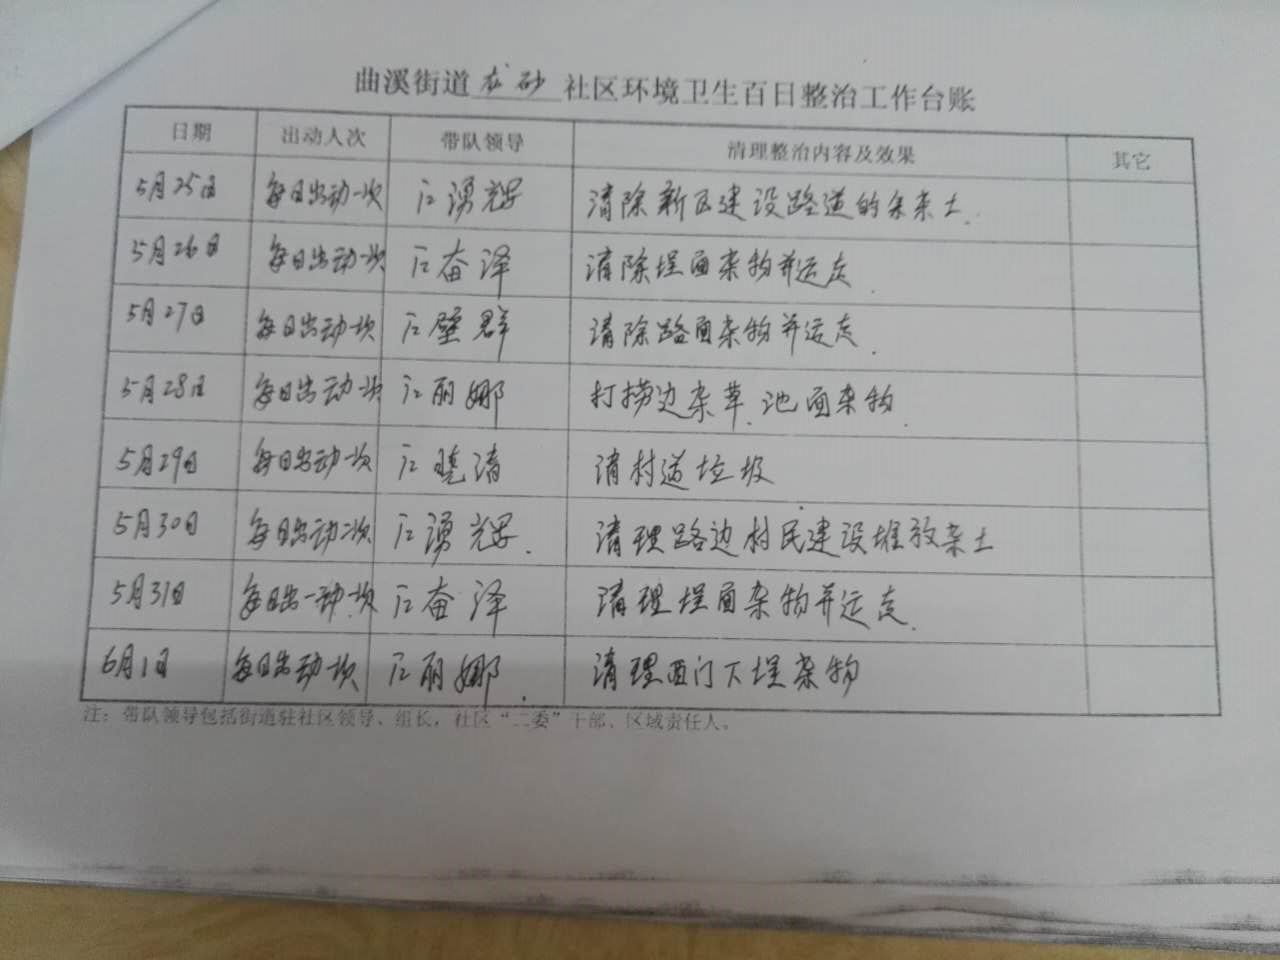 曲溪街道龙砂社区环境卫生百日整治工作台账
日期 出动人次 带队领导 清理整治内容及效果 其它
5月25日 每日出动一次 江湧辉 清除新民建设路道的余杂土.
5月26日 每日出动一次 江奋泽 清除埕面杂物并运走.
5月27日 每日出动一次 江壁群 清除路面杂物并运走.
5月28日 每日出动一次 江丽娜 打捞边杂草.池面杂物.
5月29日 每日出动一次 江晓清 清村道垃圾
5月30日 每日出动一次 江湧辉. 清理路边村民建设堆放杂土
5月31日 每日出一动次 江奋泽 清理埕面杂物并运走.
6月1日 每日出动一次 江丽娜. 清理西门下埕杂物
注：带队领导包括街道驻社区领导、组长，社区“二委”干部、区域责任人。